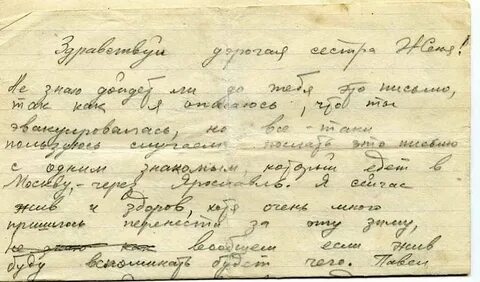 Здравствуй дорогая сестра Женя!
Не знаю дойдёт ли до тебя это письмо,
так как я опасаюсь, что ты
эвакуировалась, но все-таки
пользуюсь случаем послать это письмо
с одним знакомым, который едет в
Москву,-через Ярославль. Я сейчас
жив и здоров, хотя очень много
пришлось перенести за эту зиму,
не знаю как вообщем если жив
буду вспоминать будет чего. Павел